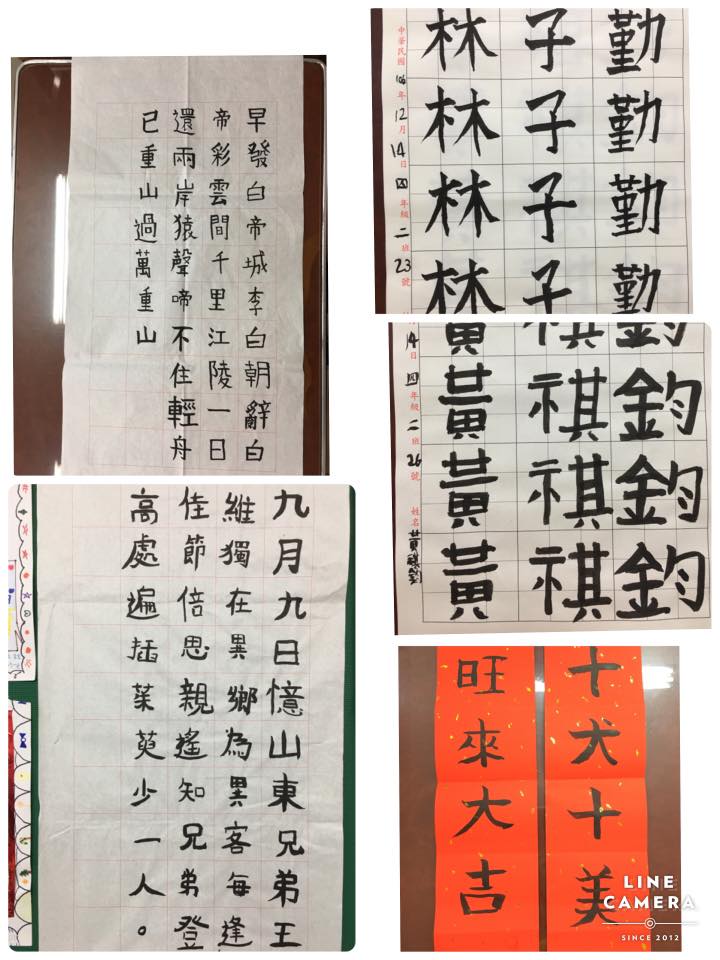 早發白帝城李白朝辭白
帝彩雲間千里江陵一日
還兩岸猿聲啼不住輕舟
已重山過萬重山
林子勤
林子勤
林子勤
林子勤
中華民國106年12月14日四年級二班23號
黃祺鈞
黃祺鈞
黃祺鈞
黃祺鈞
14日四年級二班26號 姓名黃祺鈞
九月九日憶山東兄弟王
維獨在異鄉為異客每逢
佳節倍思親遙知兄弟登
高處遍插茱萸少一人。
十犬十美
旺來大吉
LINE
CAMERA
SINCE 2012